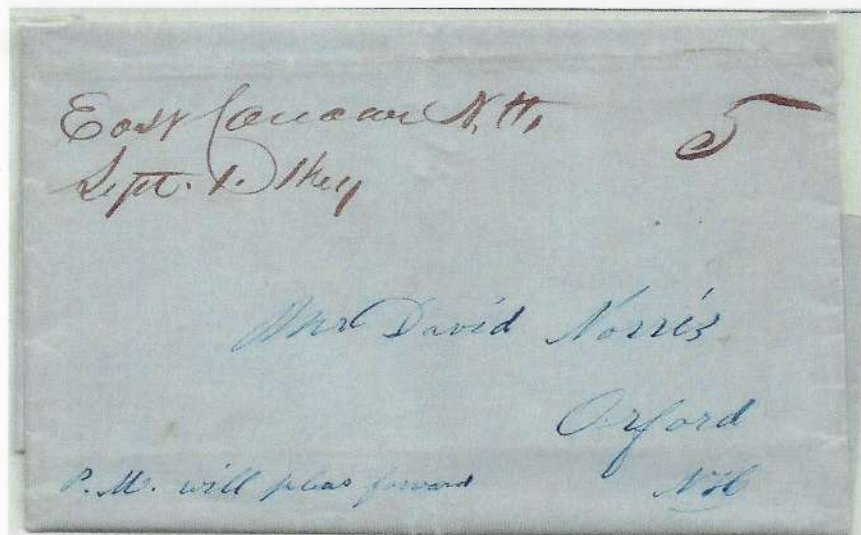 East Canaan N.H. 5
Sept. 1.
Mr David Norris
Orford
P.M. will pleas forward NH